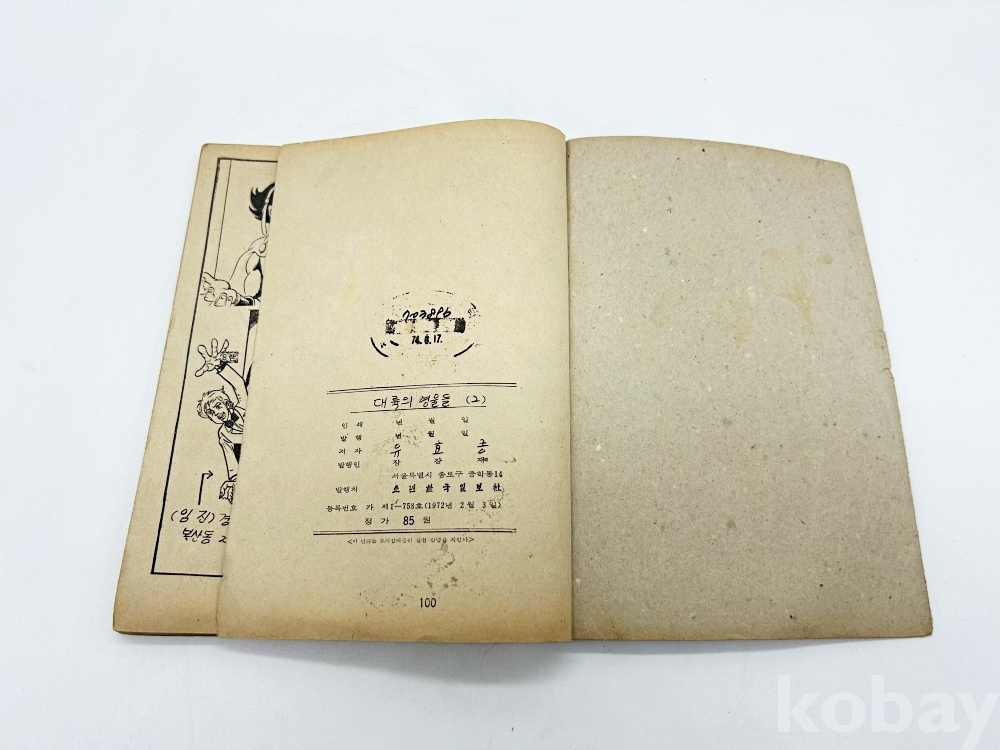 (임진)
북산동 2
74.8.17.
대륙의 영웅들 (2)
인쇄 년 월 일
발행 년 월 일
저자 유효종
발행인 장강재
서울특별시 종로구 중학동14
발행처 소년한국일보社
등록번호 가 제1-758호(1972년 2월 3일)
정가 85원
<이 만화는 도서잡지윤리 실천 강령을 지킨다>
100
kobay